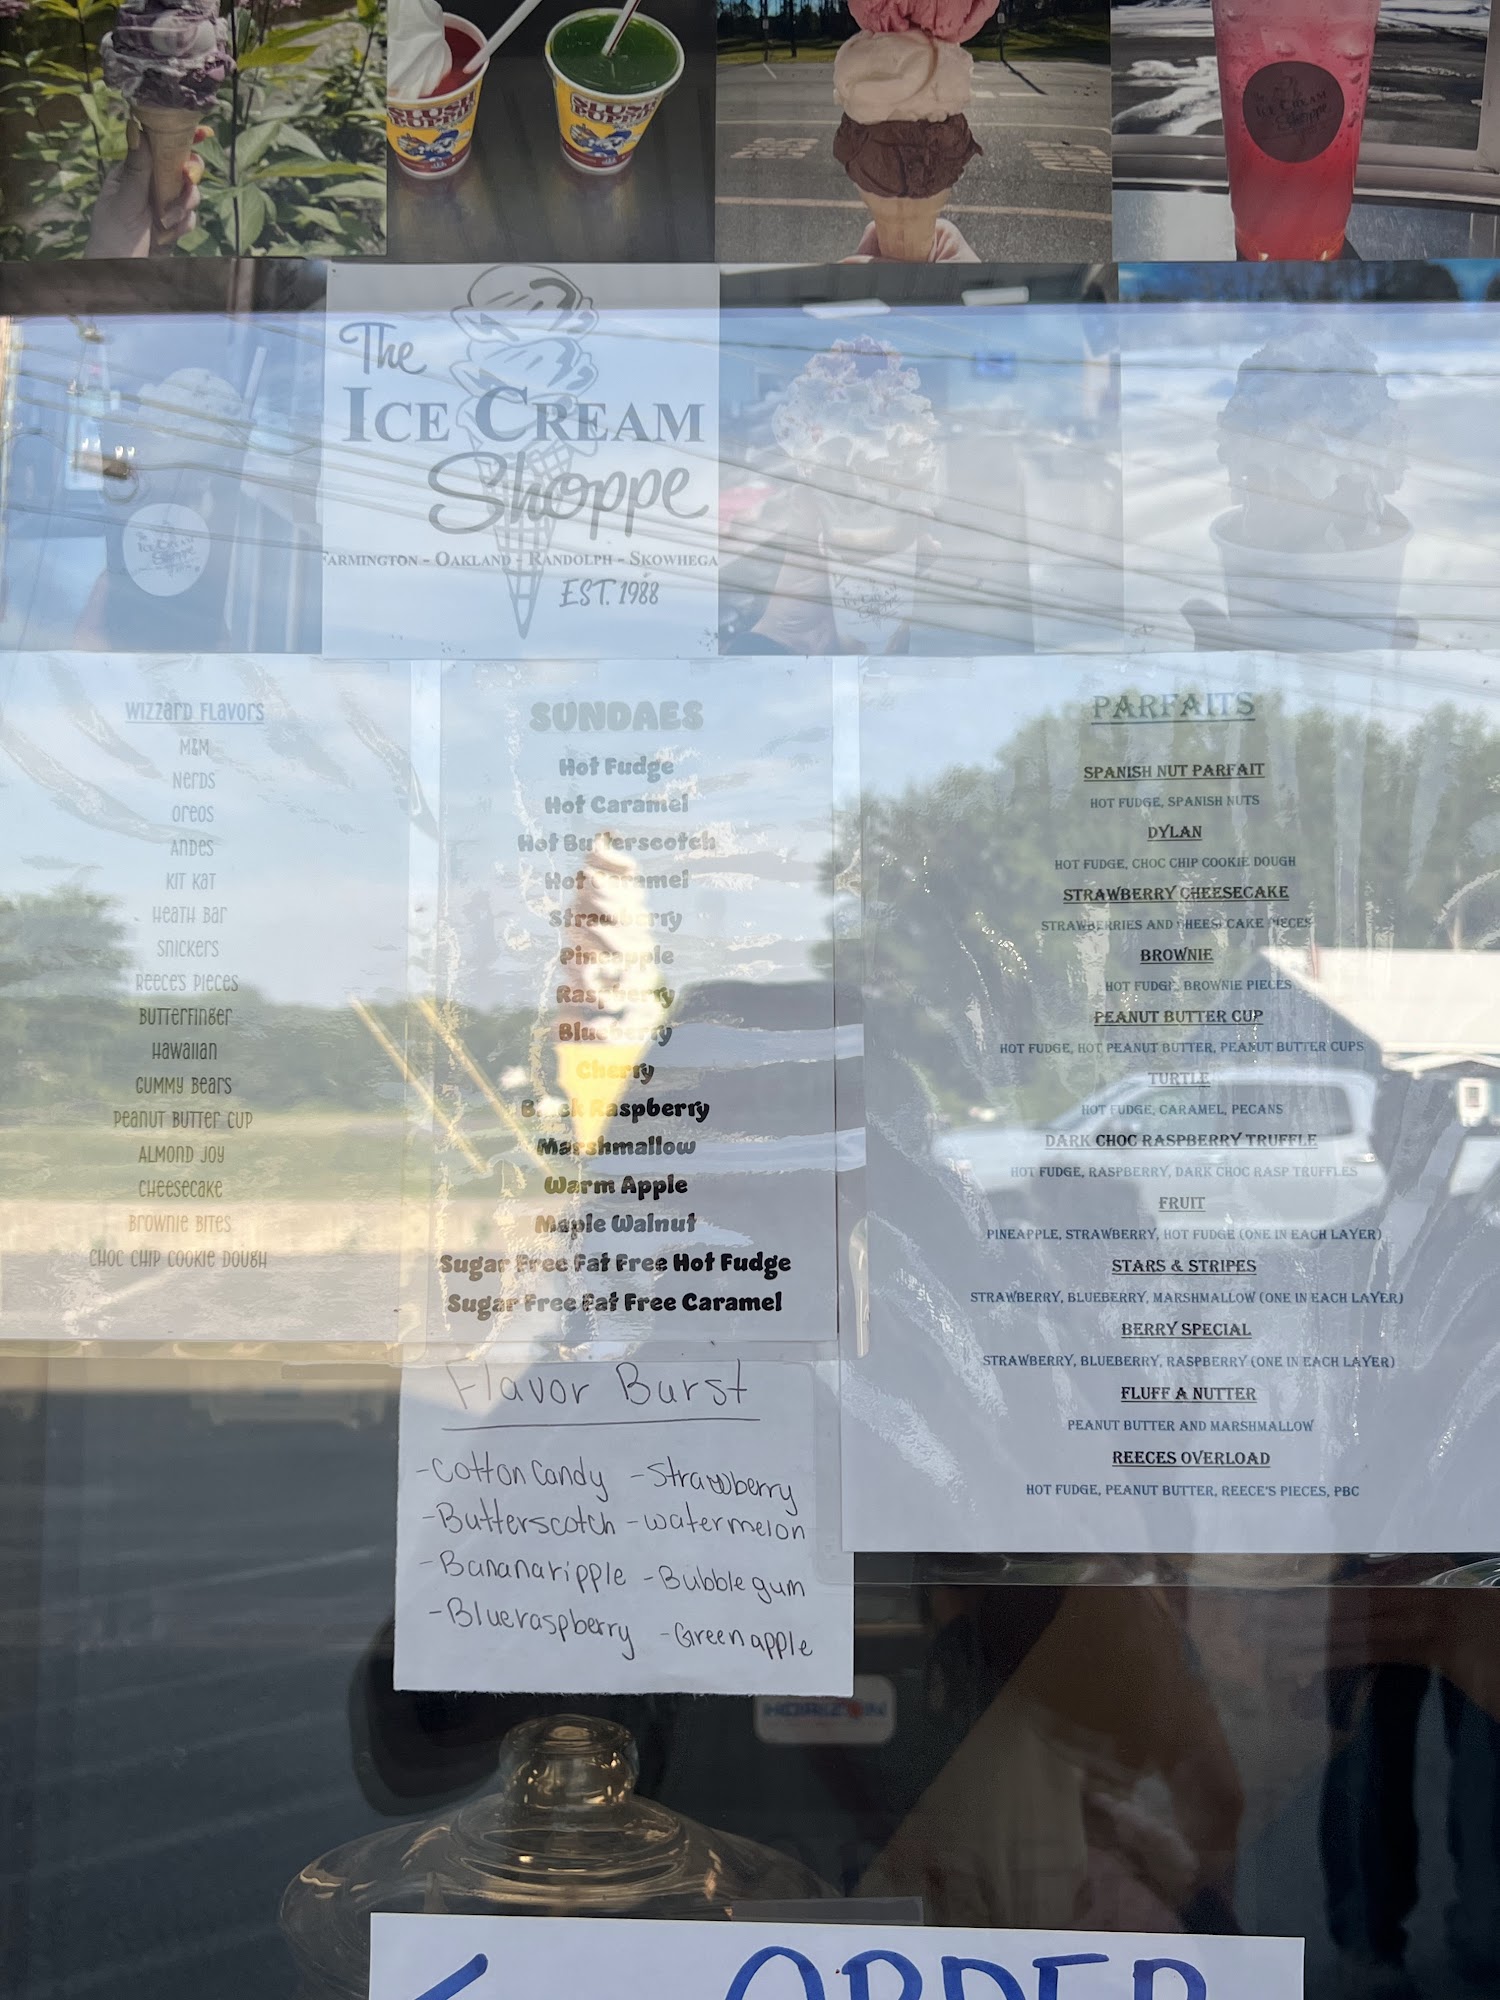 SLUSH PUPPiE
SLUSH PUPPiE
The
ICE CREAM
Shoppe
The
ICE CREAM
Shoppe
FARMINGTON - OAKLAND - RANDOLPH - SKOWHEGA
EST. 1988
WIZZARD FLAVORS
M&M
NERDS
OREOS
ANDES
KIT KAT
HEATH BAR
SNICKERS
REECE'S PIECES
BUTTERFINGER
HAWAIIAN
GUMMY BEARS
PEANUT BUTTER CUP
ALMOND JOY
CHEESECAKE
BROWNIE BITES
CHOC CHIP COOKIE DOUGH
SUNDAES
Hot Fudge
Hot Caramel
Hot Butterscotch
Hot Caramel
Strawberry
Pineapple
Raspberry
Blueberry
Cherry
Black Raspberry
Marshmallow
Warm Apple
Maple Walnut
Sugar Free Fat Free Hot Fudge
Sugar Free Fat Free Caramel
Flavor Burst
-Cotton Candy -Strawberry
-Butterscotch -watermelon
-Bananaripple -Bubblegum
-Blueraspberry -Greenapple
PARFAITS
SPANISH NUT PARFAIT
HOT FUDGE, SPANISH NUTS
DYLAN
HOT FUDGE, CHOC CHIP COOKIE DOUGH
STRAWBERRY CHEESECAKE
STRAWBERRIES AND CHEESECAKE PIECES
BROWNIE
HOT FUDGE, BROWNIE PIECES
PEANUT BUTTER CUP
HOT FUDGE, HOT PEANUT BUTTER, PEANUT BUTTER CUPS
TURTLE
HOT FUDGE, CARAMEL, PECANS
DARK CHOC RASPBERRY TRUFFLE
HOT FUDGE, RASPBERRY, DARK CHOC RASP TRUFFLES
FRUIT
PINEAPPLE, STRAWBERRY, HOT FUDGE (ONE IN EACH LAYER)
STARS & STRIPES
STRAWBERRY, BLUEBERRY, MARSHMALLOW (ONE IN EACH LAYER)
BERRY SPECIAL
STRAWBERRY, BLUEBERRY, RASPBERRY (ONE IN EACH LAYER)
FLUFF A NUTTER
PEANUT BUTTER AND MARSHMALLOW
REECES OVERLOAD
HOT FUDGE, PEANUT BUTTER, REECE'S PIECES, PBC
HORIZON
ORDER